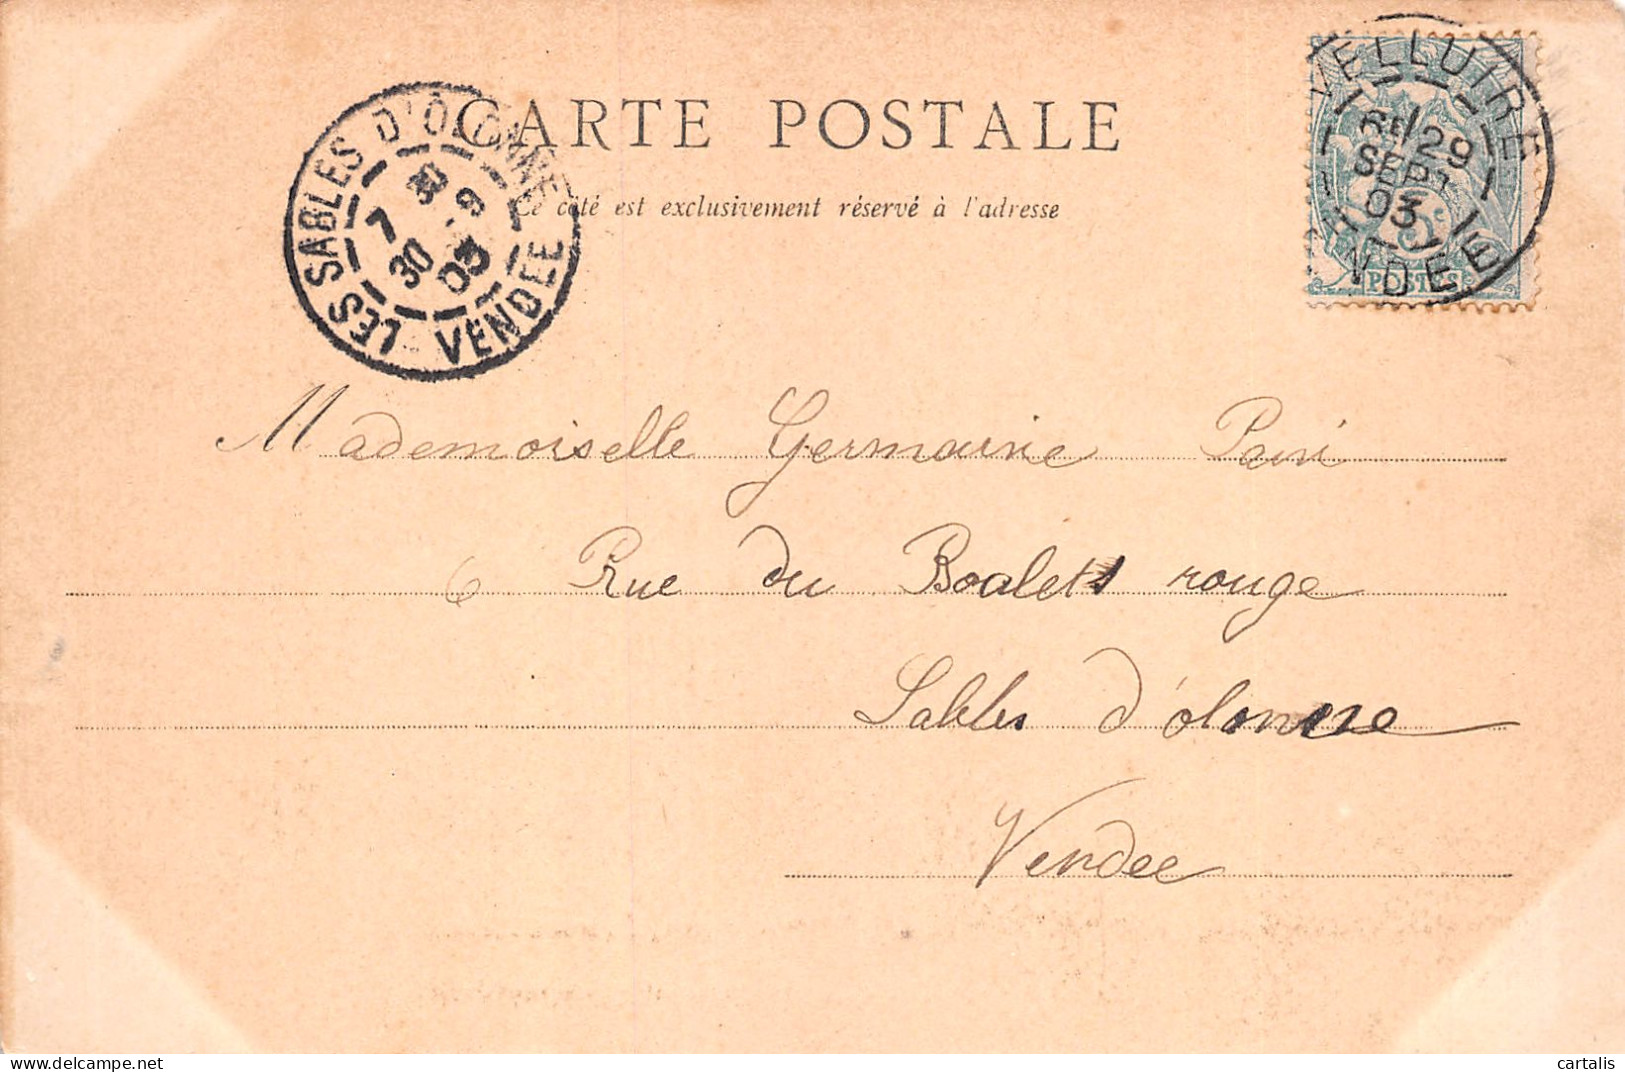 CARTE POSTALE
Ce côté est exclusivement réservé à l'adresse
LES SABLES D'OLONNE
7 30
30 9
03
VENDÉE
VELLUIRE
6E/29
SEPT
03
VENDEE
5c
POSTES
Mademoiselle Germaine
6 Rue du Boalets rouge
Sables d'olonne
Vendee
cartalis